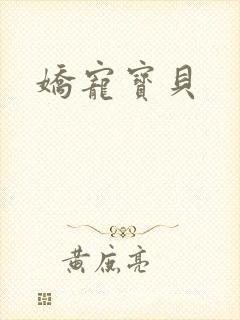 嬌寵寶貝
黃庶亮